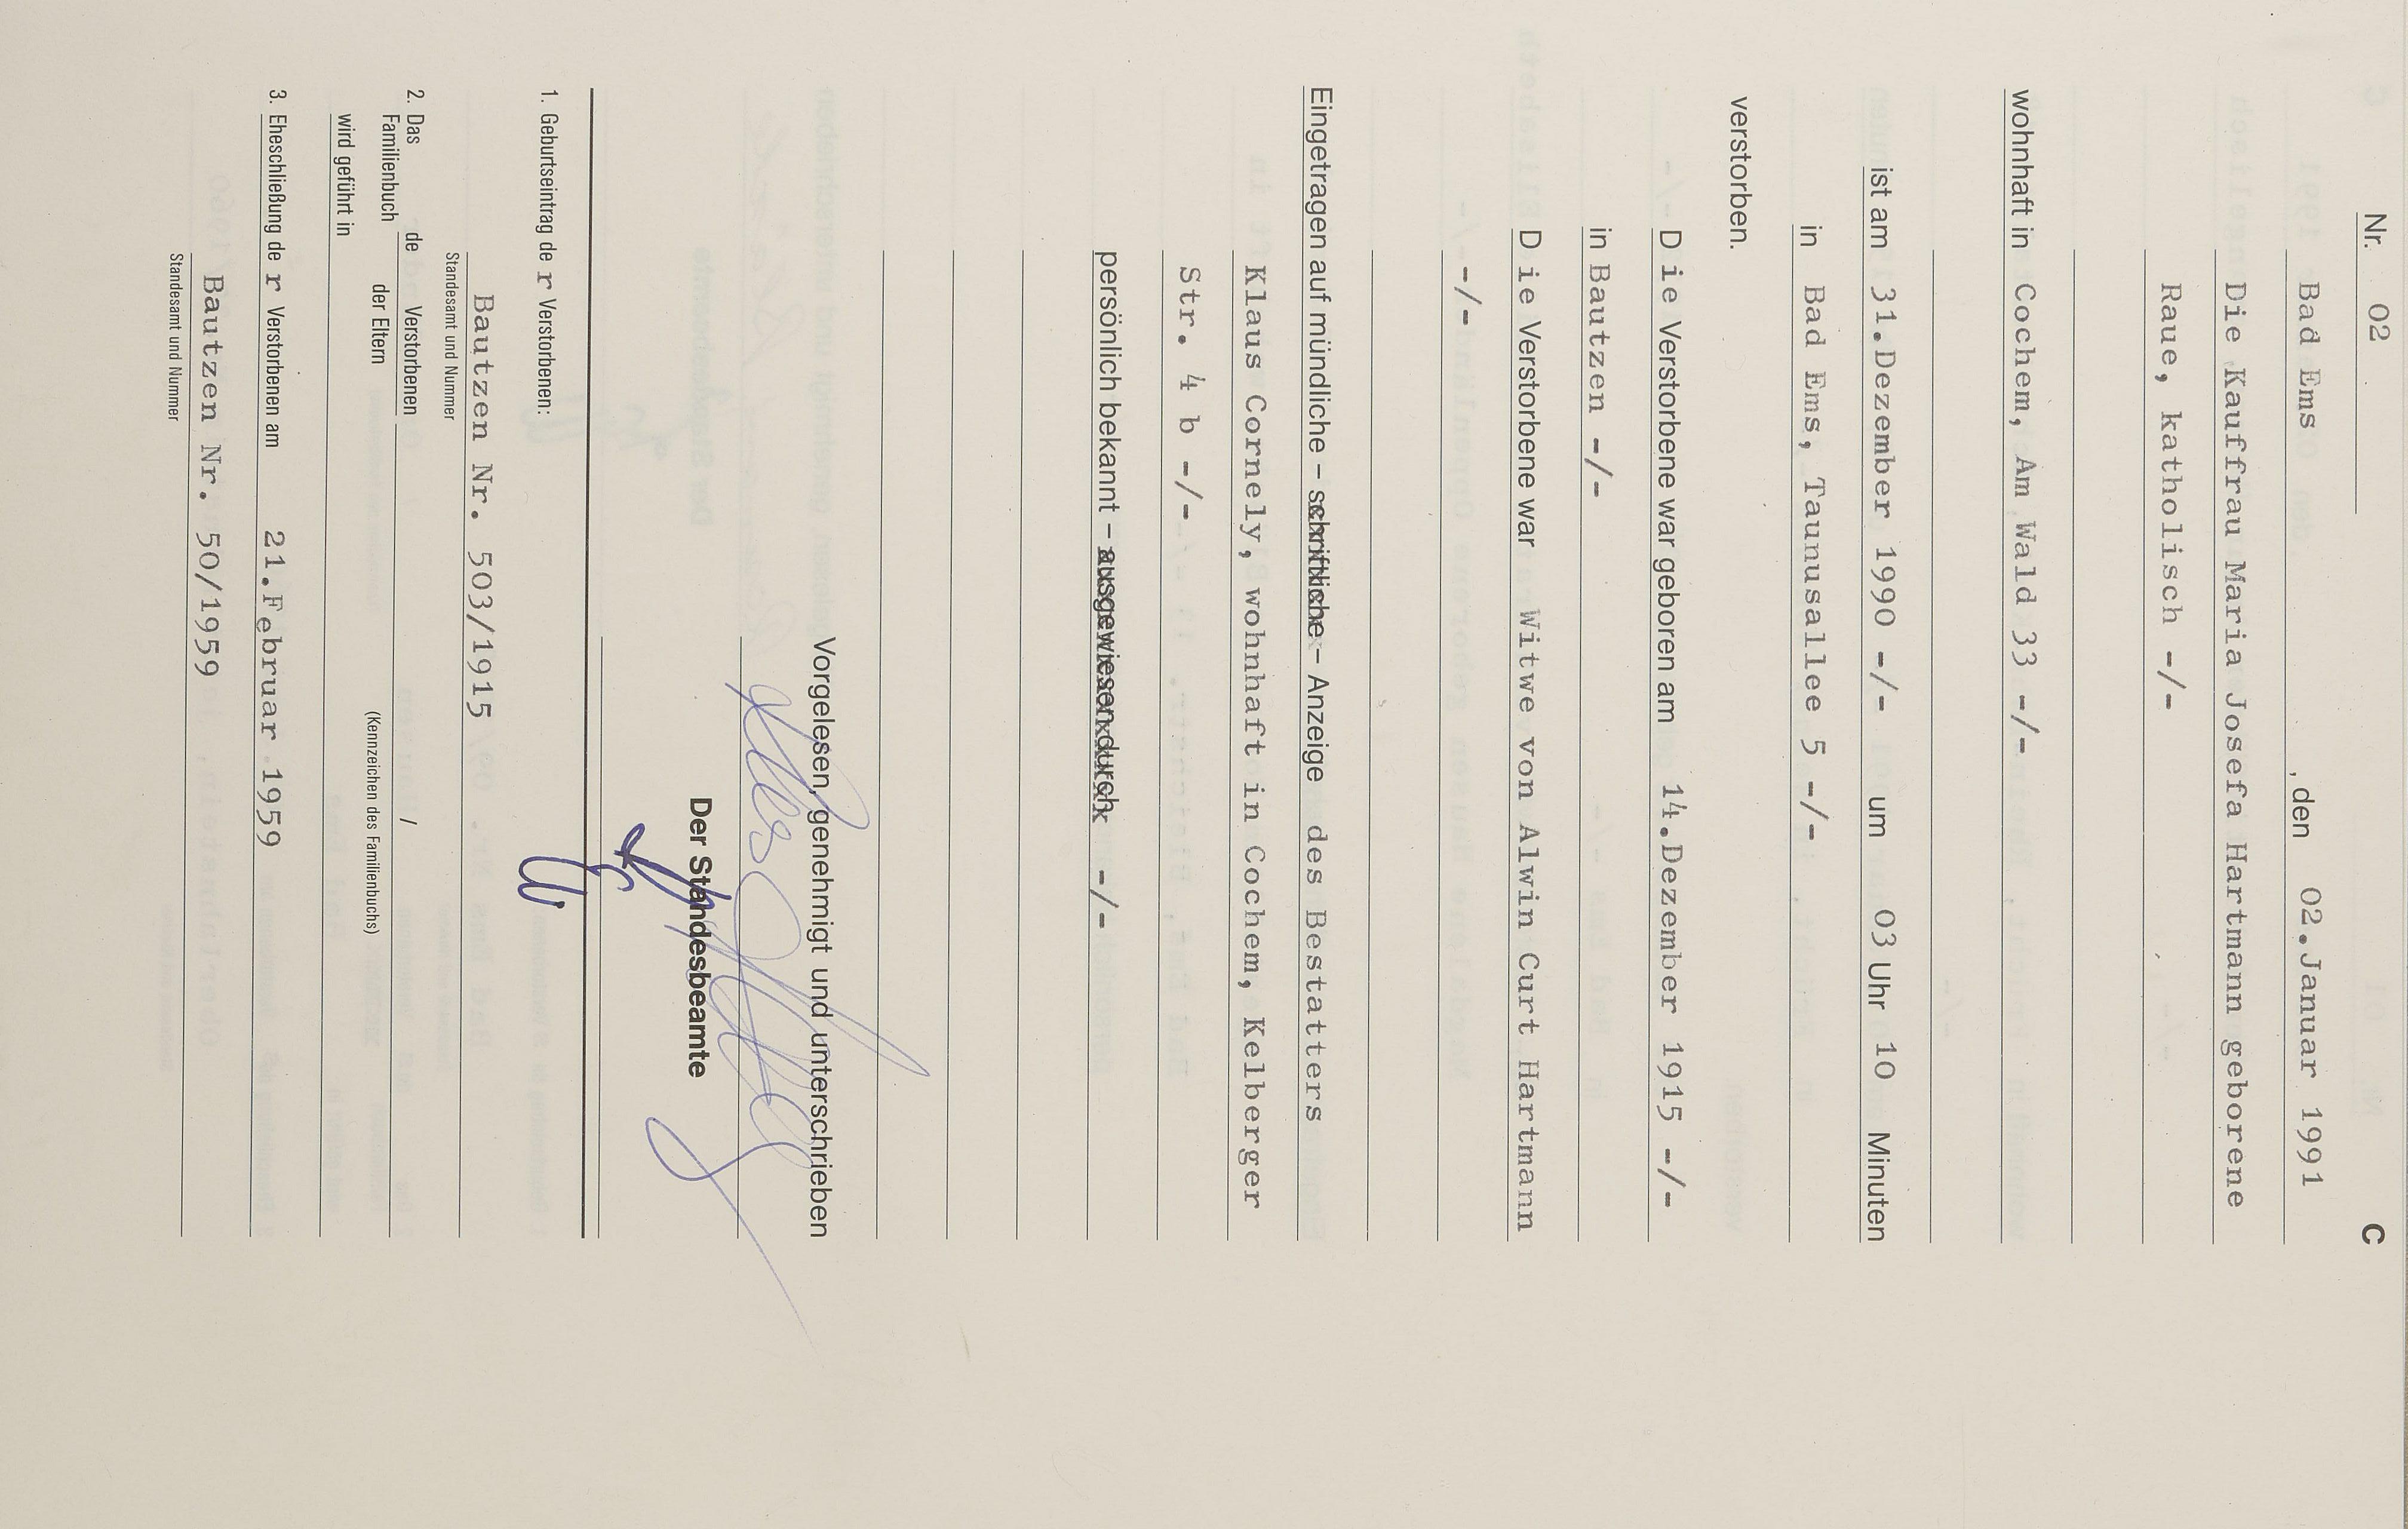 Nr. 02 C
Bad Ems, den 02.Januar 1991
Die Kauffrau Maria Josefa Hartmann geborene
Raue, katholisch -/-
wohnhaft in Cochem, Am Wald 33 -/-
ist am 31.Dezember 1990 -/- um 03 Uhr 10 Minuten
in Bad Ems, Taunusallee 5 -/-
verstorben.
Die Verstorbene war geboren am 14.Dezember 1915 -/-
in Bautzen -/-
Die Verstorbene war Witwe von Alwin Curt Hartmann
-/-
Eingetragen auf mündliche – schriftliche – Anzeige des Bestatters
Klaus Cornely, wohnhaft in Cochem, Kelberger
Str. 4 b -/-
persönlich bekannt – ausgewiesen durch -/-
Vorgelesen, genehmigt und unterschrieben
Der Standesbeamte
1. Geburtseintrag der Verstorbenen:
Bautzen Nr. 503/1915
Standesamt und Nummer
2. Das Familienbuch de Verstorbenen / der Eltern
(Kennzeichen des Familienbuchs)
wird geführt in
3. Eheschließung der Verstorbenen am 21.Februar 1959
Bautzen Nr. 50/1959
Standesamt und Nummer